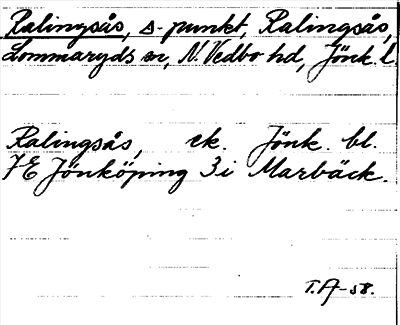 Ralingsås, △-punkt, Ralingsås,
Lommaryds sn, N. Vedbo hd, Jönk. l.
Ralingsås, ek. Jönk. bl.
7E Jönköping 3i Marbäck.
T.A-58.